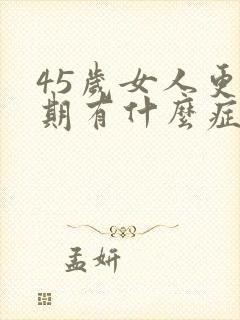 45歲女人更
期有什麼症
孟妍